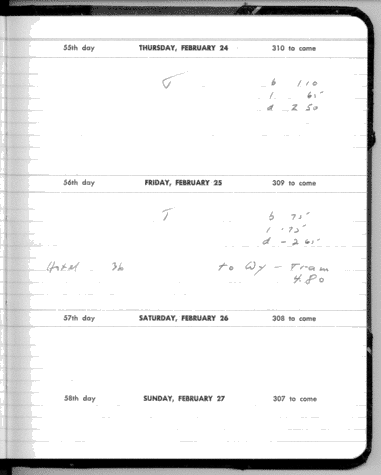 55th day THURSDAY, FEBRUARY 24 310 to come
T b 1 10
l 65
d 2 50
56th day FRIDAY, FEBRUARY 25 309 to come
T b 75
l .75
d - 2 65
Hotel 36 to Wy - Tram
4.80
57th day SATURDAY, FEBRUARY 26 308 to come
58th day SUNDAY, FEBRUARY 27 307 to come